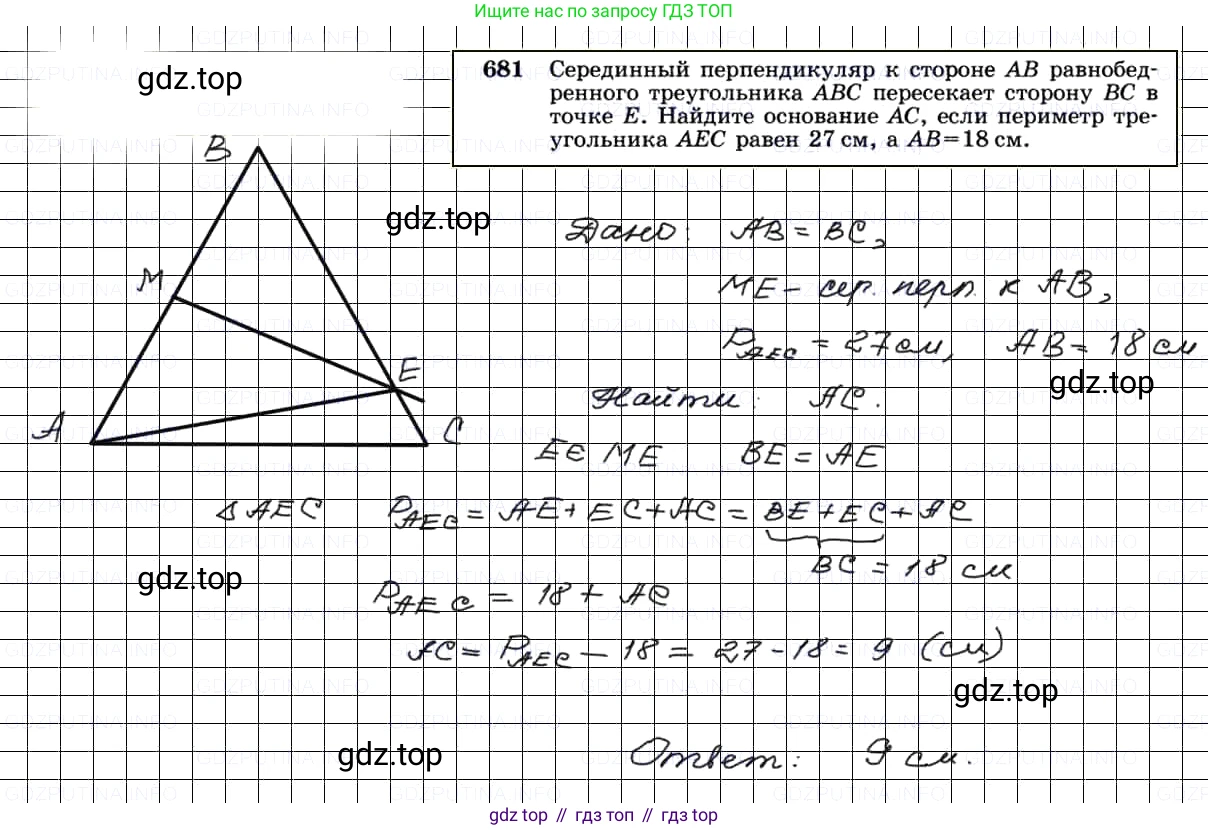 Ищите нас по запросу ГДЗ ТОП
gdz.top
681 Серединный перпендикуляр к стороне AB равнобед-
ренного треугольника ABC пересекает сторону BC в
точке E. Найдите основание AC, если периметр тре-
угольника AEC равен 27 см, а AB=18 см.
B
gdz.top
Дано: AB = BC,
M
ME – сер. перп. к AB,
P_AEC = 27 см, AB = 18 см
E
gdz.top
Найти: AC.
A
C
E ∈ ME BE = AE
Δ AEC P_AEC = AE + EC + AC = BE + EC + AC
BC = 18 см
gdz.top
P_AEC = 18 + AC
AC = P_AEC – 18 = 27 - 18 = 9 (см)
gdz.top
gdz.top
Ответ: 9 см.
gdz top // гдз топ // гдз top
GDZPUTINA.INFO